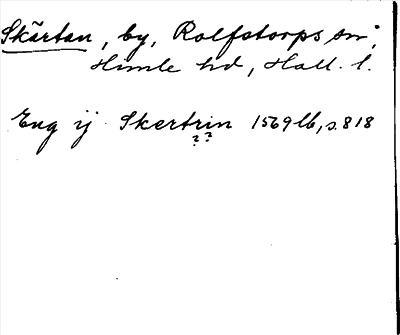 Skärtan, by, Rolfstorps sn,
Himle hd, Hall. l.
Eng ij Skertrin 1569 lb, s. 818
? ?